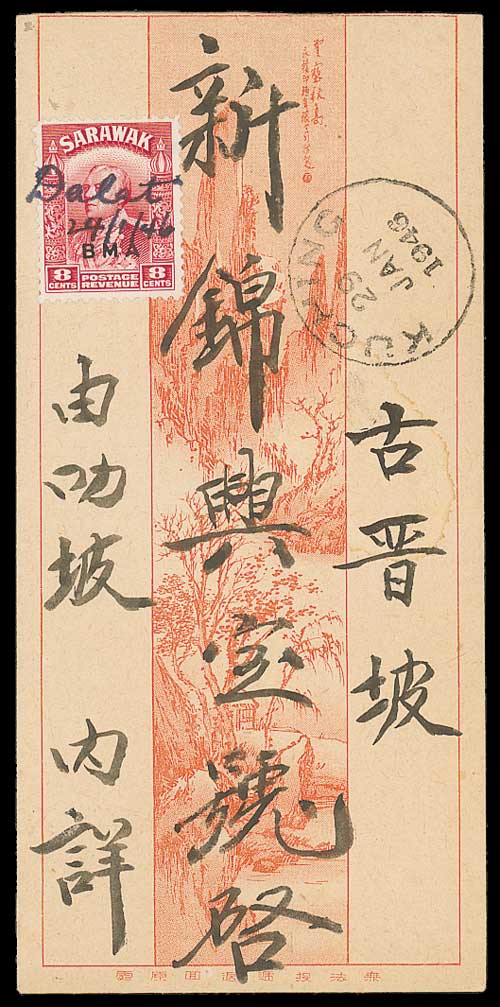 古晋坡
新錦興宝號啓
由叻坡 內詳
SARAWAK
Dalat
24/1/46
BMA
8 CENTS POSTAGE REVENUE 8 CENTS
KUCHING
29 JAN 1946